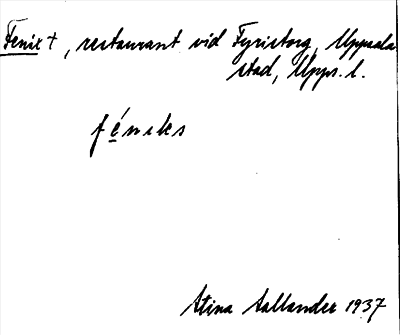 Fenix †, restaurant vid Fyristorg, Uppsala
stad, Upps. l.
féniks
Stina Aallander 1937